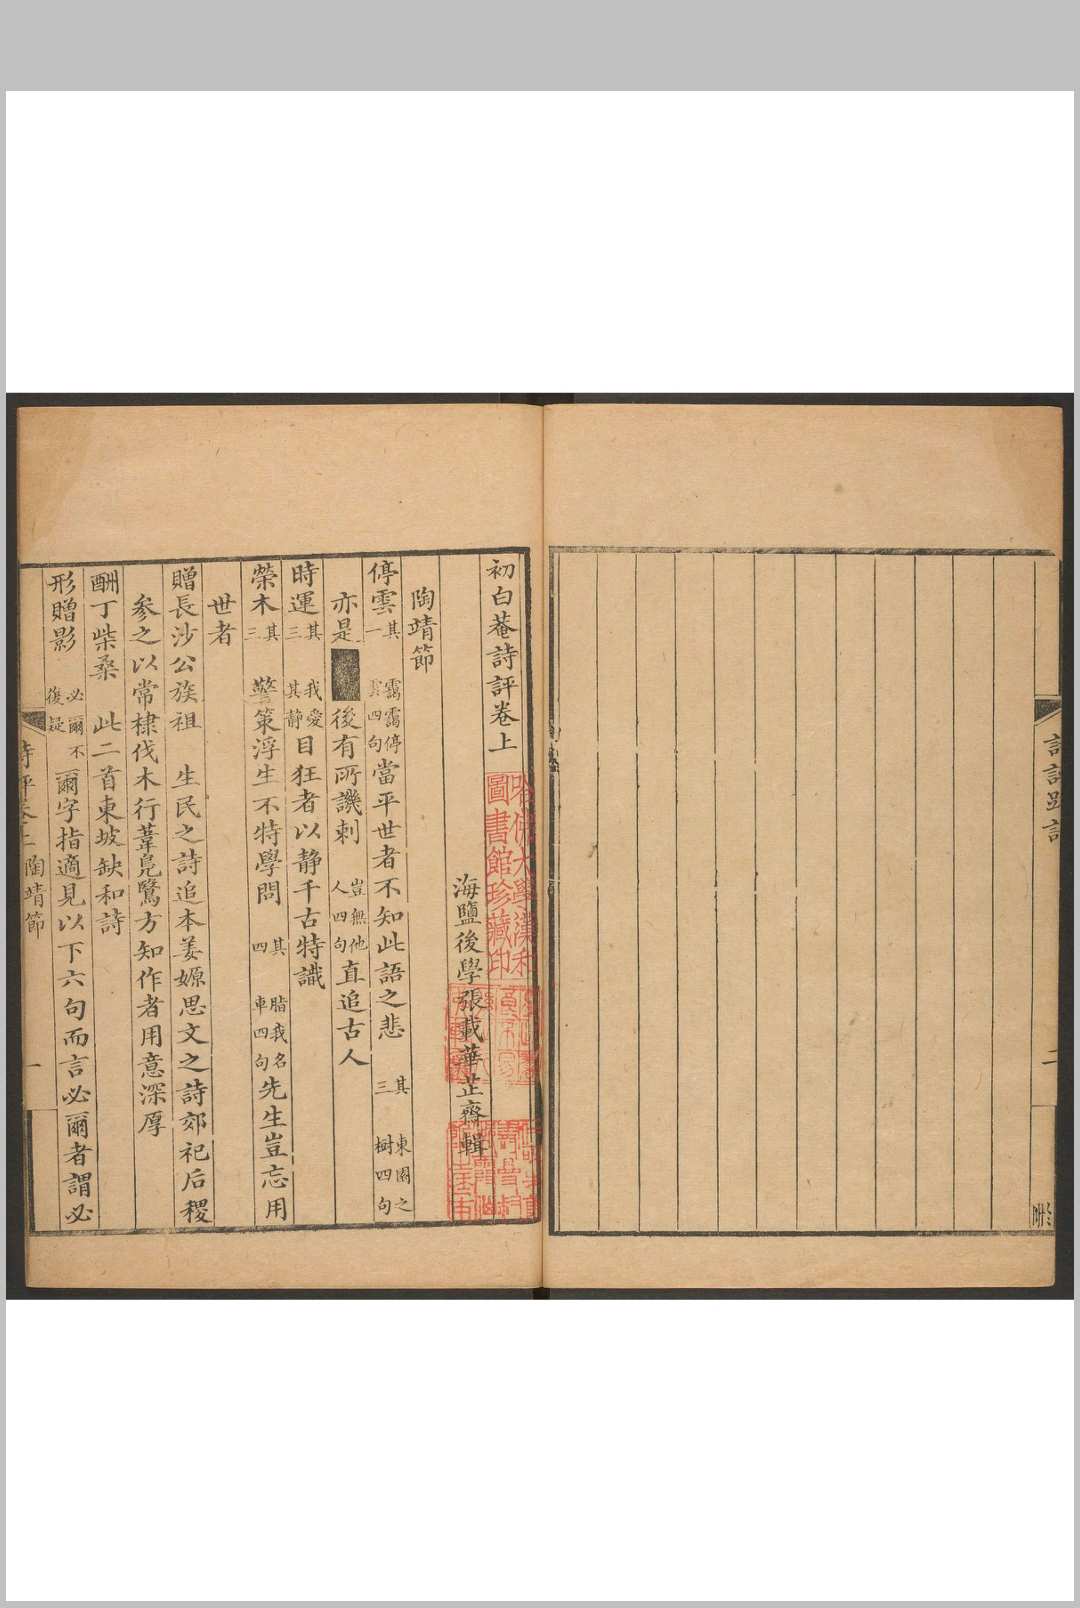 初白菴詩評卷上
海鹽後學張載華芷齋輯
陶靖節
停雲 其一 靄靄停雲四句 當平世者不知此語之悲 其三 東園之樹四句
亦是 後有所譏刺 豈無他人四句 直追古人
時運 其三 我愛其静 目狂者以静千古特識
榮木 其三 警策浮生不特學問 其四 脂我名車四句 先生豈忘用
世者
贈長沙公族祖 生民之詩追本姜嫄思文之詩郊祀后稷
參之以常棣伐木行葦鳧鷖方知作者用意深厚
酬丁柴桑 此二首東坡缺和詩
形贈影 必爾不復疑 爾字指適見以下六句而言必爾者謂必
詩評卷上 陶靖節 一
哈佛大學漢和圖書館珍藏印
二